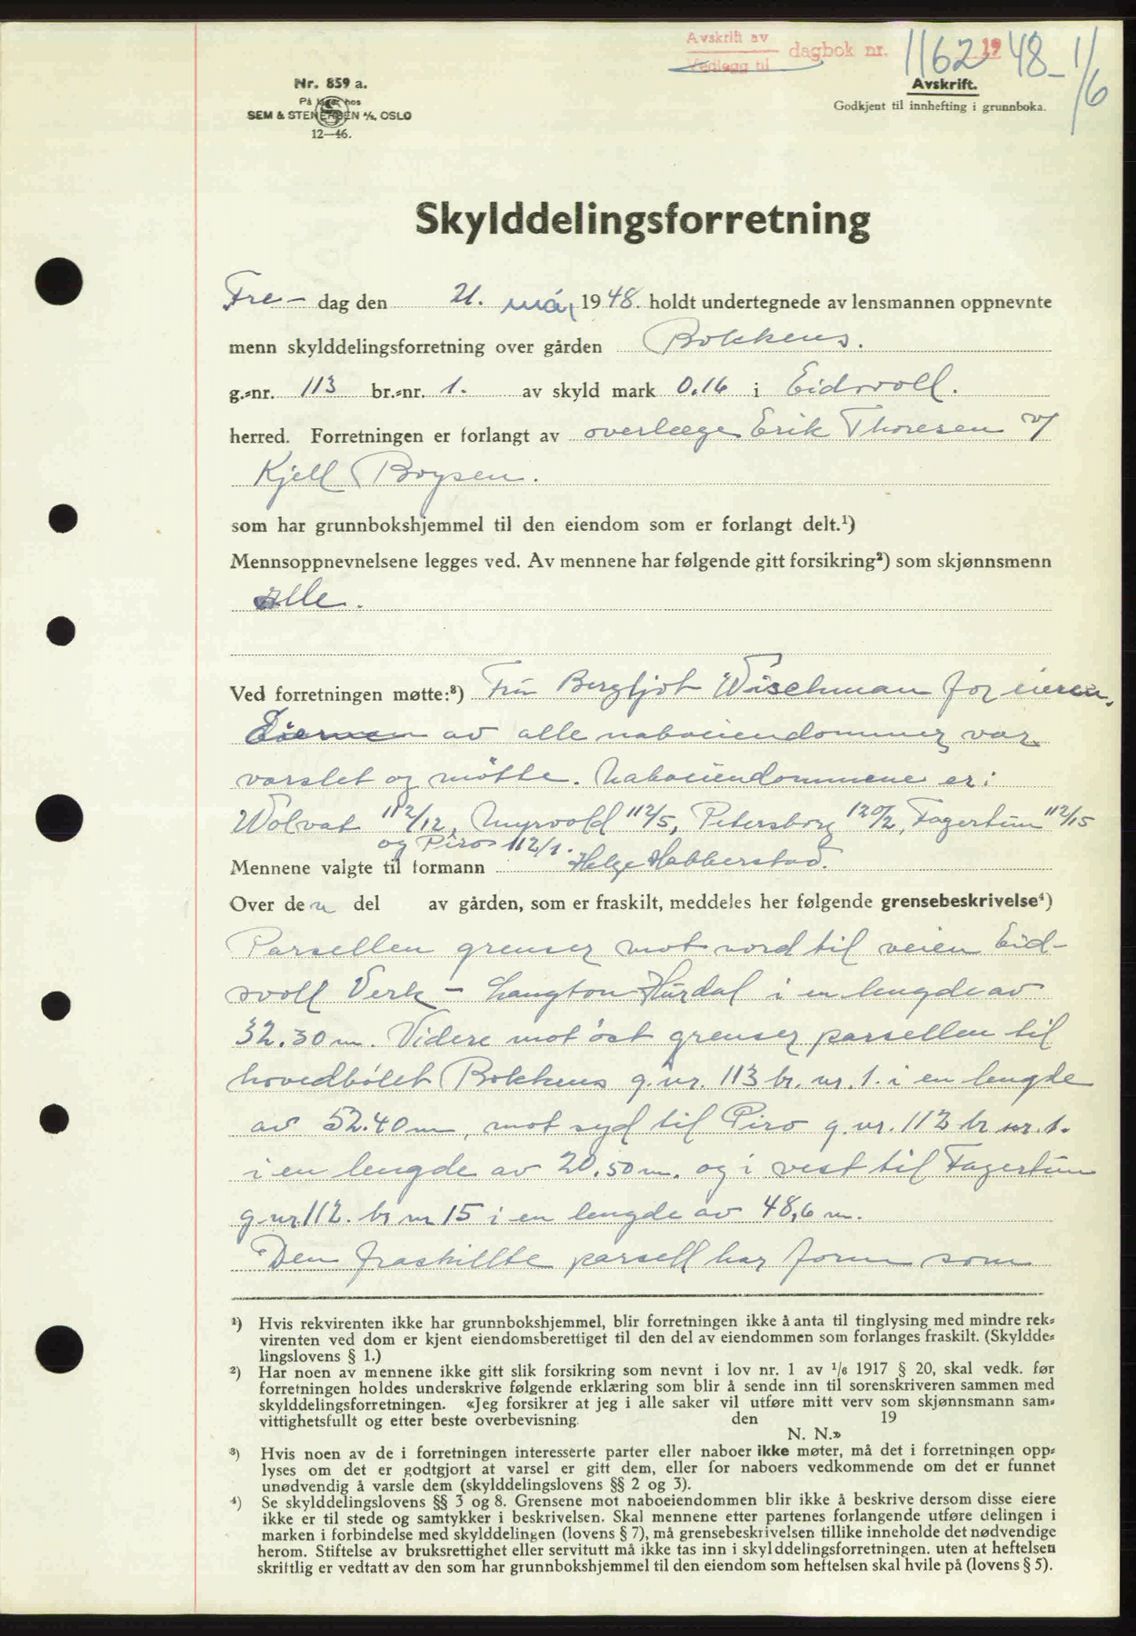 Avskrift av
Vedlegg til
dagbok nr. 1162 1948 - 1/6
Nr. 859 a.
På lager hos
SEM & STENERSEN A/S, OSLO
12—46.
Avskrift.
Godkjent til innhefting i grunnboka.
Skylddelingsforretning
Fre- dag den 21. mai 1948. holdt undertegnede av lensmannen oppnevnte
menn skylddelingsforretning over gården Bokkens.
g.-nr. 113 br.-nr. 1. av skyld mark 0.16 i Eidsvoll.
herred. Forretningen er forlangt av overlæge Erik Thoresen v/
Kjell Boysen.
som har grunnbokshjemmel til den eiendom som er forlangt delt.¹)
Mennsoppnevnelsene legges ved. Av mennene har følgende gitt forsikring²) som skjønnsmenn
Alle.
Ved forretningen møtte:³) Fru Bergljot Wischman for eieren.
Eierne av alle naboeiendommer var
varslet og møtte. Naboeiendommene er:
Wolvat 112/12, Myrvold 112/5, Petersborg 120/2, Fagertun 112/15
og Piro 112/1.
Mennene valgte til formann Helge Habberstad.
Over den del av gården, som er fraskilt, meddeles her følgende grensebeskrivelse⁴)
Parsellen grenser mot nord til veien Eid-
svoll Verk - Langton-Hurdal i en lengde av
32.30 m. Videre mot øst grenser parsellen til
hovedbølet Bokkens g.nr. 113 br. nr. 1. i en lengde
av 52.40 m, mot syd til Piro g.nr. 112 br nr. 1.
i en lengde av 20.50 m. og i vest til Fagertun
g.nr. 112. br nr 15 i en lengde av 48,6 m.
Den fraskillte parsell har form som
¹) Hvis rekvirenten ikke har grunnbokshjemmel, blir forretningen ikke å anta til tinglysing med mindre rek-
virenten ved dom er kjent eiendomsberettiget til den del av eiendommen som forlanges fraskilt. (Skyldde-
lingslovens § 1.)
²) Har noen av mennene ikke gitt slik forsikring som nevnt i lov nr. 1 av 1/6 1917 § 20, skal vedk. før
forretningen holdes underskrive følgende erklæring som blir å sende inn til sorenskriveren sammen med
skylddelingsforretningen. «Jeg forsikrer at jeg i alle saker vil utføre mitt verv som skjønnsmann sam-
vittighetsfullt og etter beste overbevisning den 19
N. N.»
³) Hvis noen av de i forretningen interesserte parter eller naboer ikke møter, må det i forretningen opp-
lyses om det er godtgjort at varsel er gitt dem, eller for naboers vedkommende om det er funnet
unødvendig å varsle dem (skylddelingslovens §§ 2 og 3).
⁴) Se skylddelingslovens §§ 3 og 8. Grensene mot naboeiendommen blir ikke å beskrive dersom disse eiere
ikke er til stede og samtykker i beskrivelsen. Skal mennene etter partenes forlangende utføre delingen i
marken i forbindelse med skylddelingen (lovens § 7), må grensebeskrivelsen tillike inneholde det nødvendige
herom. Stiftelse av bruksrettighet eller servitutt må ikke tas inn i skylddelingsforretningen. uten at heftelsen
skriftlig er vedtatt av den som har grunnbokshjemmel til den eiendom som heftelsen skal hvile på (lovens § 5).